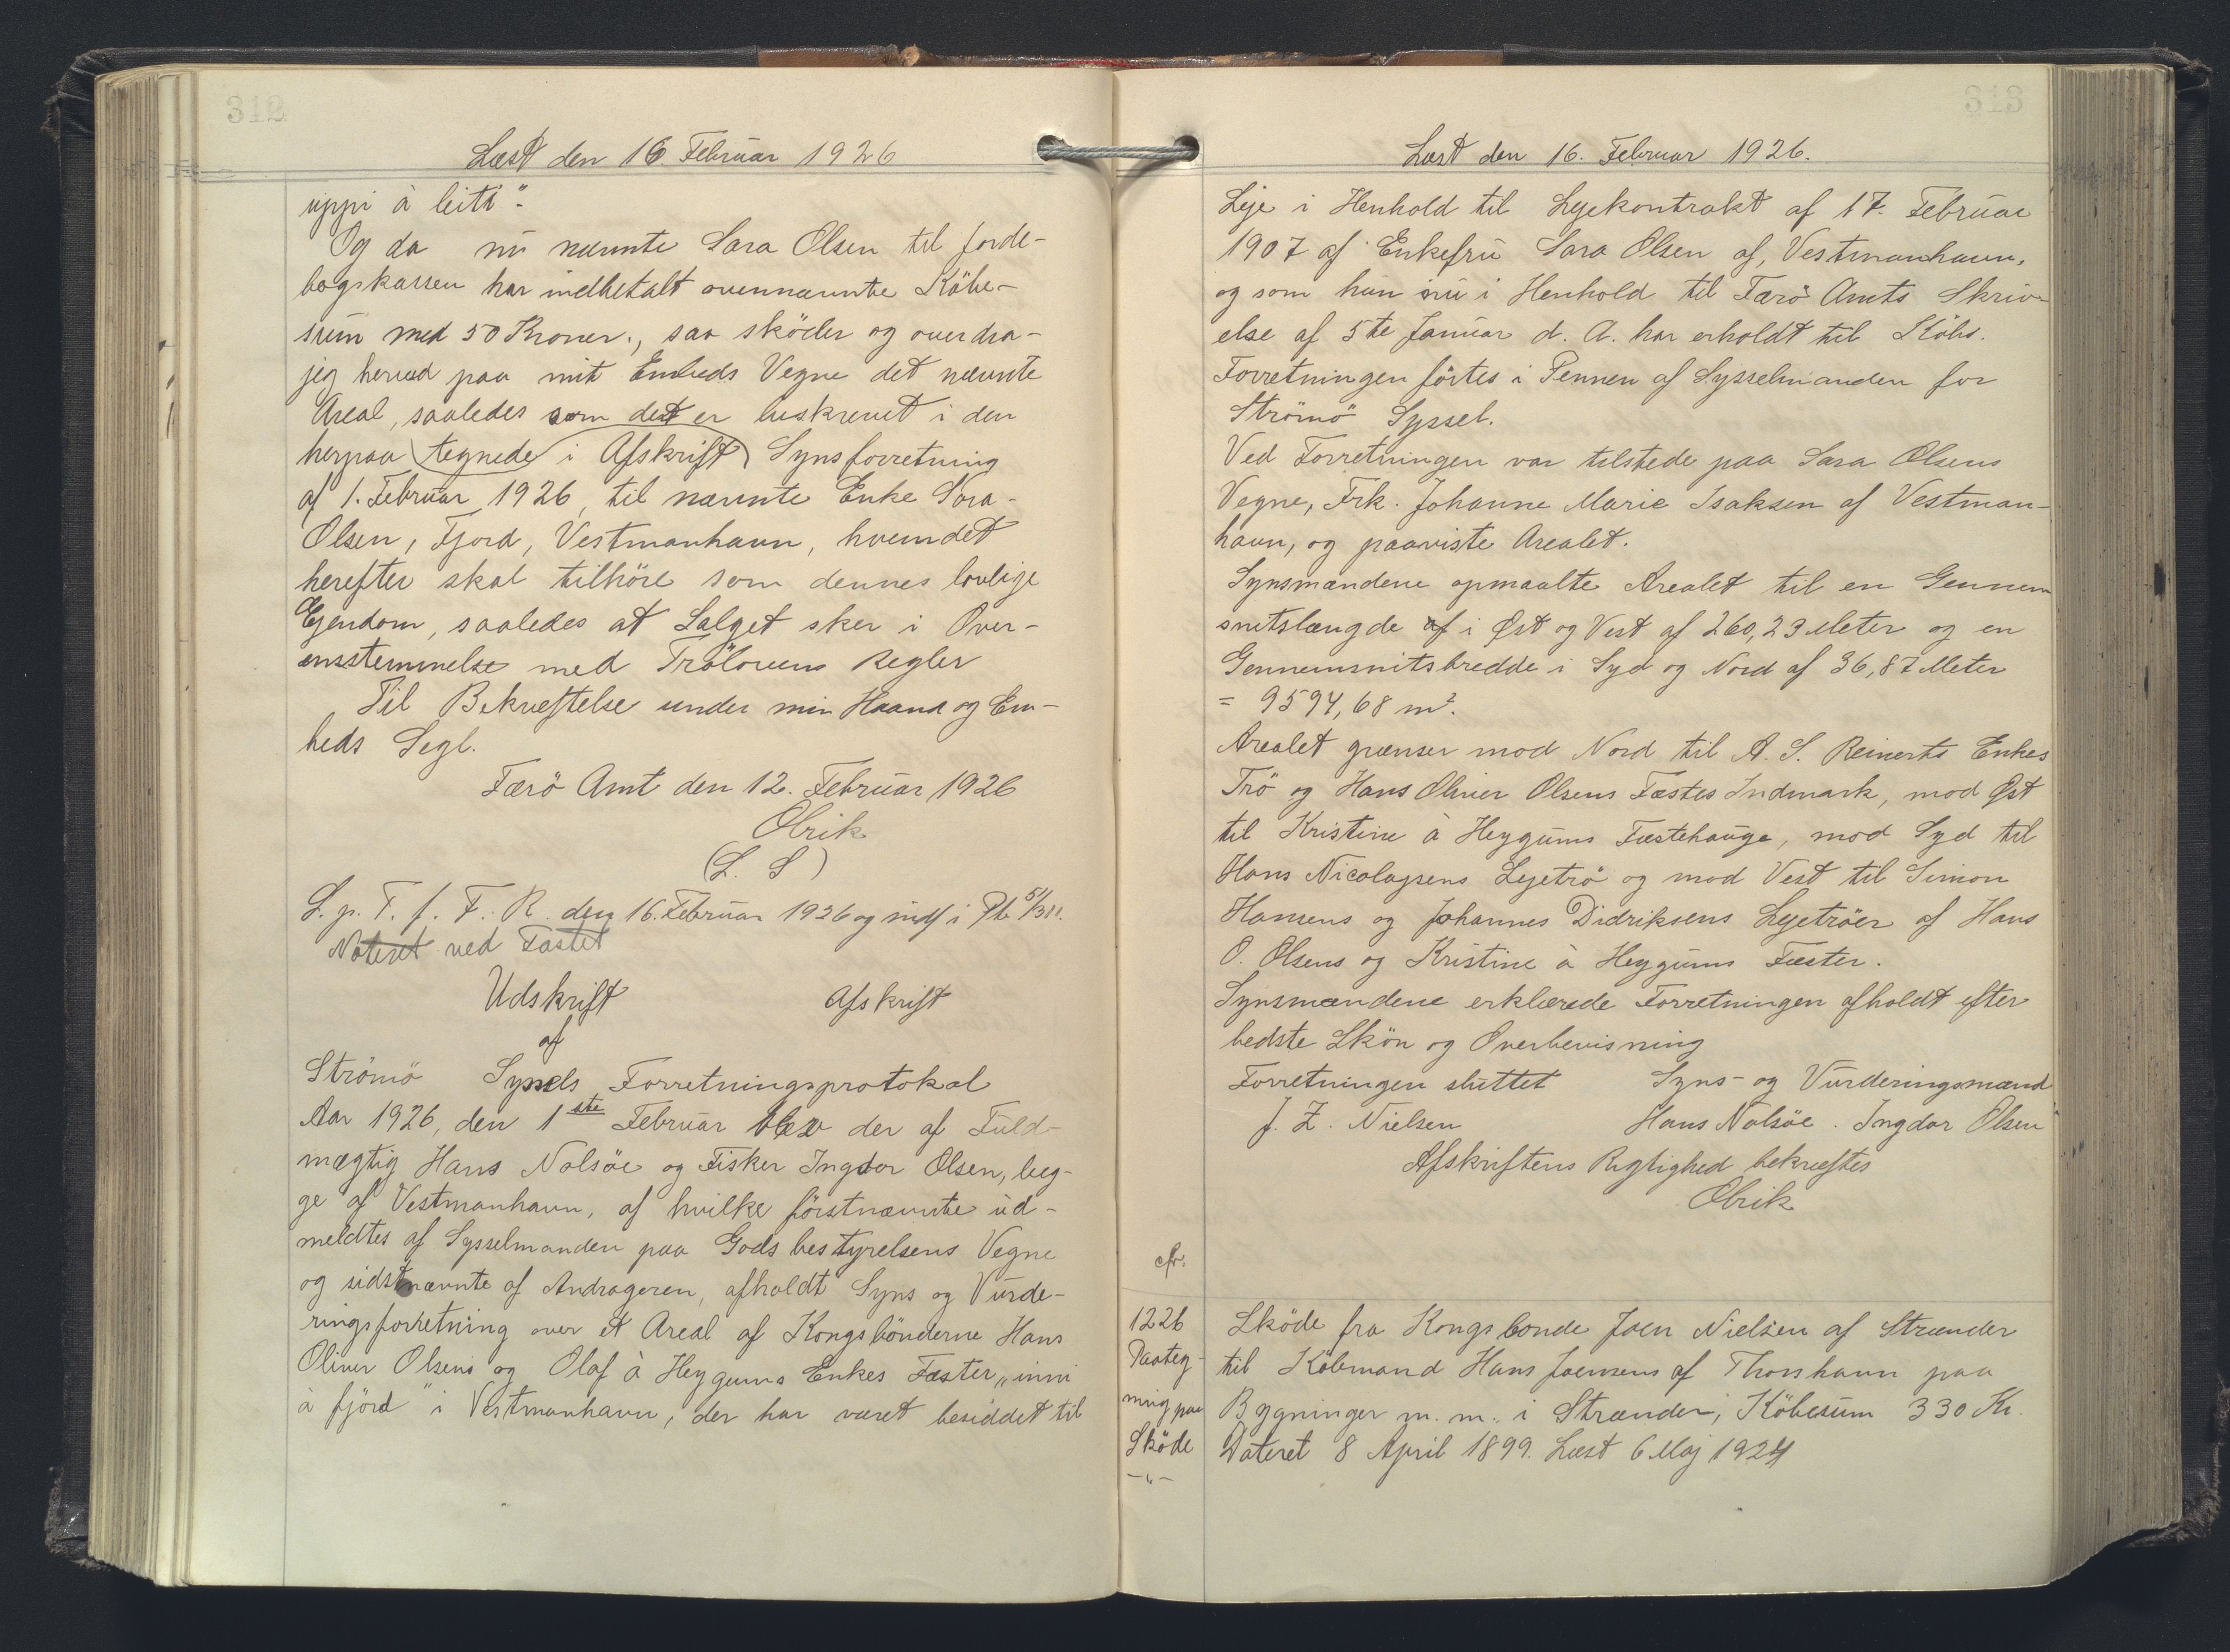 312
Læst den 16. Februar 1926
uppi à leiti".
Og da nu nævnte Sara Olsen til Jorde-
bogskassen har indbetalt ovennævnte Købe-
sum med 50 Kroner., saa sköder og overdra-
jeg herved paa mit Embeds Vegne det nævnte
Areal, saaledes som det er beskrevet i den
herpaa tegnede i Afskrift Synsforretning
af 1. Februar 1926, til nævnte Enke Sara
Olsen, Fjord, Vestmanhavn, hvem det
herefter skal tilhöre som dennes lovlige
Ejendom, saaledes at Salget sker i Over-
ensstemmelse med Trölovens Regler
Til Bekræftelse under min Haand og Em-
beds Segl.
Færö Amt den 12. Februar 1926
Obrik
(L. S)
L. p. T. f. F. R. den 16. Februar 1926 og indf i Pb. 5/311.
Noteret ved Fæstet
Udskrift Afskrift
af
Strömö Syssels Forretningsprotokol
Aar 1926, den 1ste Februar blev der af Fuld-
mægtig Hans Nolsöe og Fisker Ingdor Olsen, beg-
ge af Vestmanhavn, af hvilke förstnævnte ud-
meldtes af Sysselmanden paa Godsbestyrelsens Vegne
og sidstnævnte af Andrageren, afholdt Syns og Vurde-
ringsforretning over et Areal af Kongsbönderne Hans
Oliver Olsens og Olaf à Heygums Enkes Fæster „inni
à fjörd" i Vestmanhavn, der har været besiddet til
313
Læst den 16. Februar 1926.
Leje i Henhold til Lejekontrakt af 17. Februar
1907 af Enkefru Sara Olsen af, Vestmanhavn,
og som hun nu i Henhold til Færö Amts Skriv-
else af 5te Januar d. A. har erholdt til Köbs.
Forretningen förtes i Pennen af Sysselmanden for
Strömö Syssel.
Ved Forretningen var tilstede paa Sara Olsens
Vegne, Frk. Johanne Marie Isaksen af Vestman-
havn, og paaviste Arealet.
Synsmændene opmaalte Arealet til en Gennem
snitslængde af i Øst og Vest af 260,23 Meter og en
Gennemsnitsbredde i Syd og Nord af 36,87 Meter
= 9594,68 m².
Arealet grænser mod Nord til A. S. Reinerts Enkes
Trö og Hans Oliver Olsens Fæstes Indmark, mod Øst
til Kristine à Heygums Fæstehauge, mod Syd til
Hans Nicolajsens Lejetrö og mod Vest til Simon
Hansens og Johannes Didriksens Lejetröer af Hans
O. Olsens og Kristine à Heygums Fæster.
Synsmændene erklærede Forretningen afholdt efter
bedste Skön og Overbevisning
Forretningen sluttet Syns- og Vurderingsmænd
J. Z. Nielsen Hans Nolsöe. Ingdor Olsen
Afskriftens Rigtighed bekræftes
Obrik
cfr.
1226 Sköde fra Kongsbonde Joen Nielsen af Strænder
Paateg- til Köbmand Hans Joensens af Thorshavn paa
ning paa Bygninger m. m. i Strænder, Köbesum 330 Kr.
Sköde Dateret 8 April 1899. Læst 6 Maj 1924
-"-